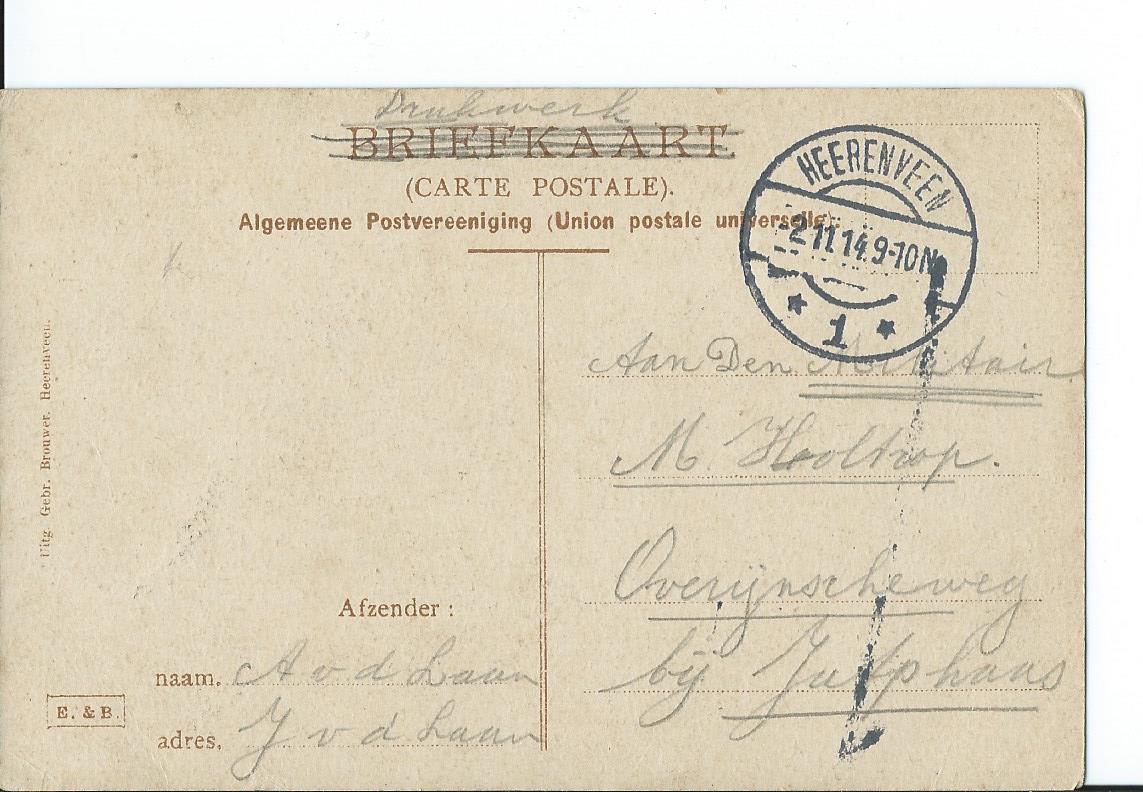 Drukwerk
BRIEFKAART
(CARTE POSTALE).
Algemeene Postvereeniging (Union postale universelle).
HEERENVEEN
-2.11.14.9-10N
1
Aan Den Militair
M. Hooltrop.
Overijnscheweg
bij Jutphaas
Uitg. Gebr. Brouwer. Heerenveen.
Afzender :
naam. A v d Laan
adres. J v d Laan
E. & B.